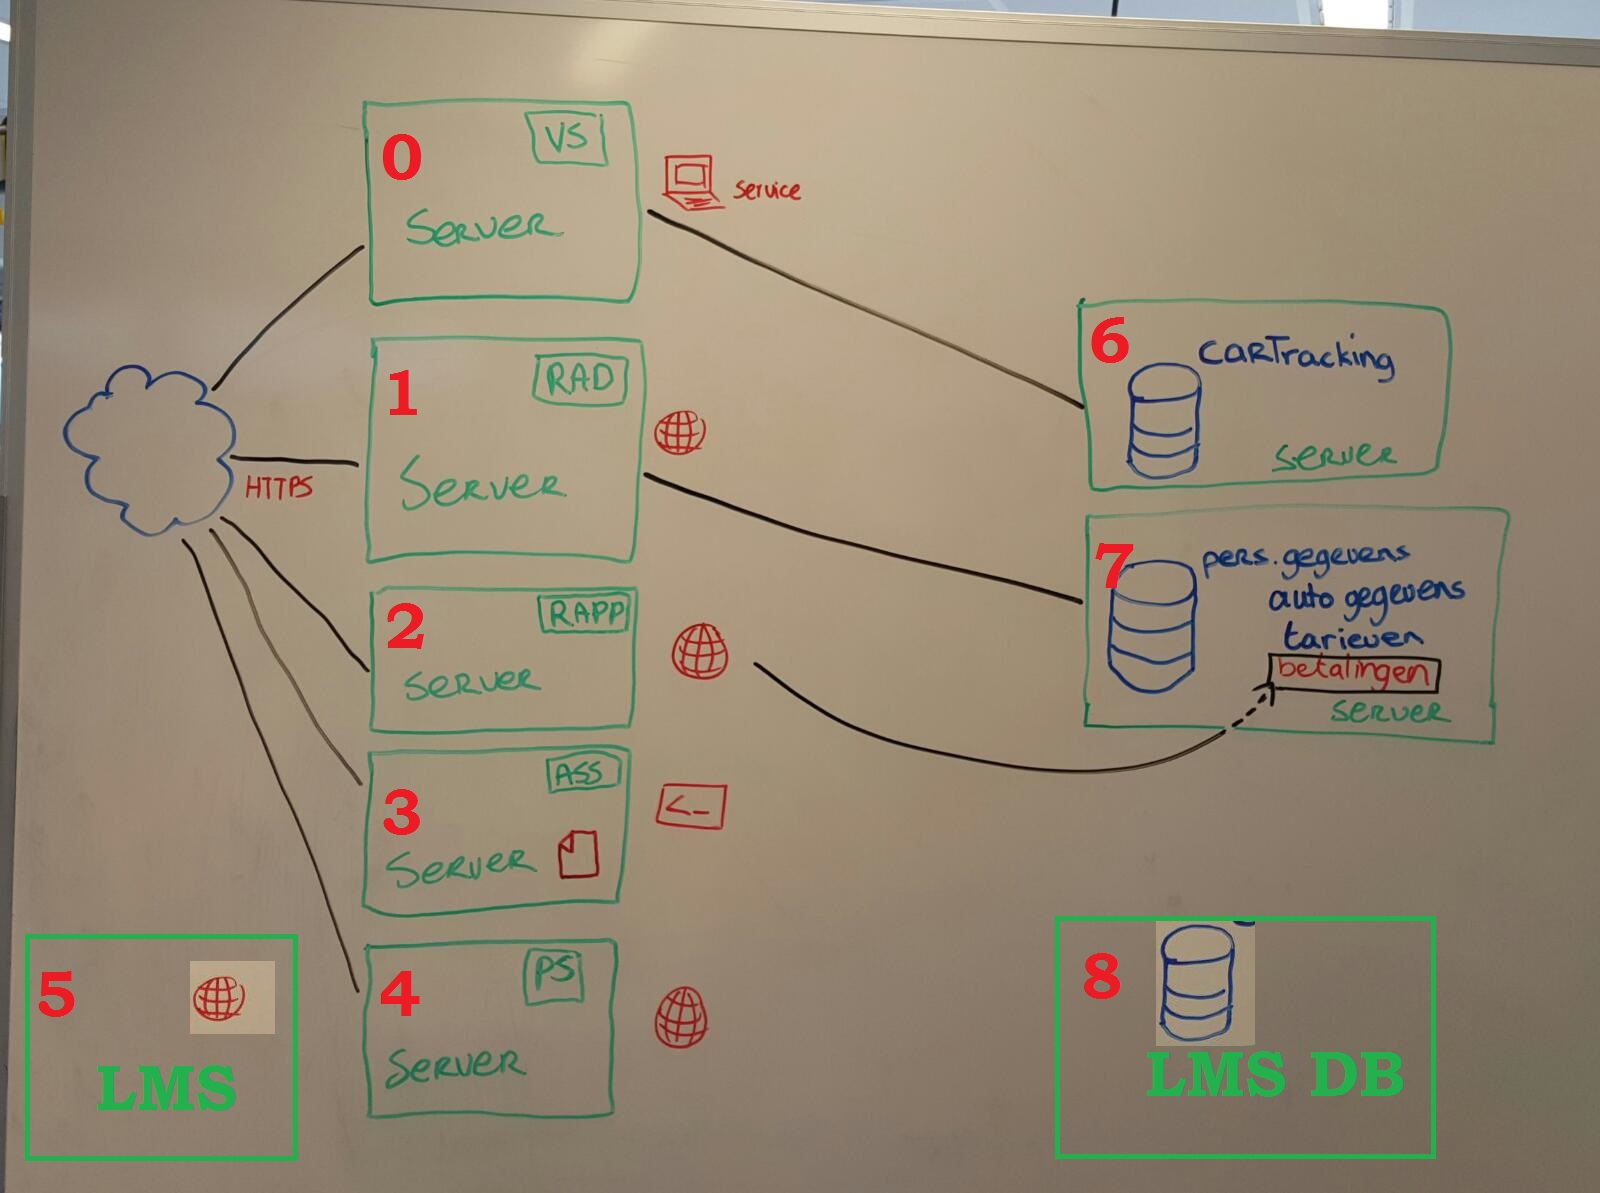 0
VS
Server
service
1
RAD
Server
HTTPS
2
RAPP
Server
3
ASS
Server
<_
4
PS
Server
5
LMS
6
CARTracking
Server
7
pers.gegevens
auto gegevens
tarieven
betalingen
Server
8
LMS DB